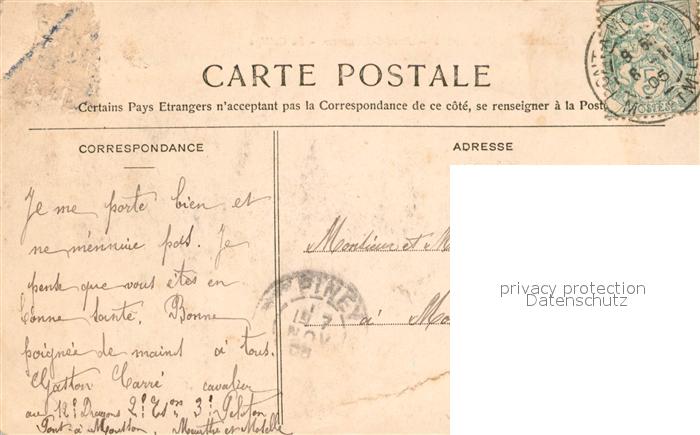 CARTE POSTALE
Certains Pays Etrangers n'acceptant pas la Correspondance de ce côté, se renseigner à la Post
CORRESPONDANCE
ADRESSE
Je me porte bien et
ne m'ennuie pas. Je
pense que vous êtes en
bonne santé. Bonne
poignée de mains à tous.
Gaston Carré cavalier
au 12e Dragons 2e Eson 3e Peloton
Pont-à-Mousson, Meurthe et Moselle
Monsieur et M
à Mo
PINEY
NOV
POSTES
privacy protection
Datenschutz